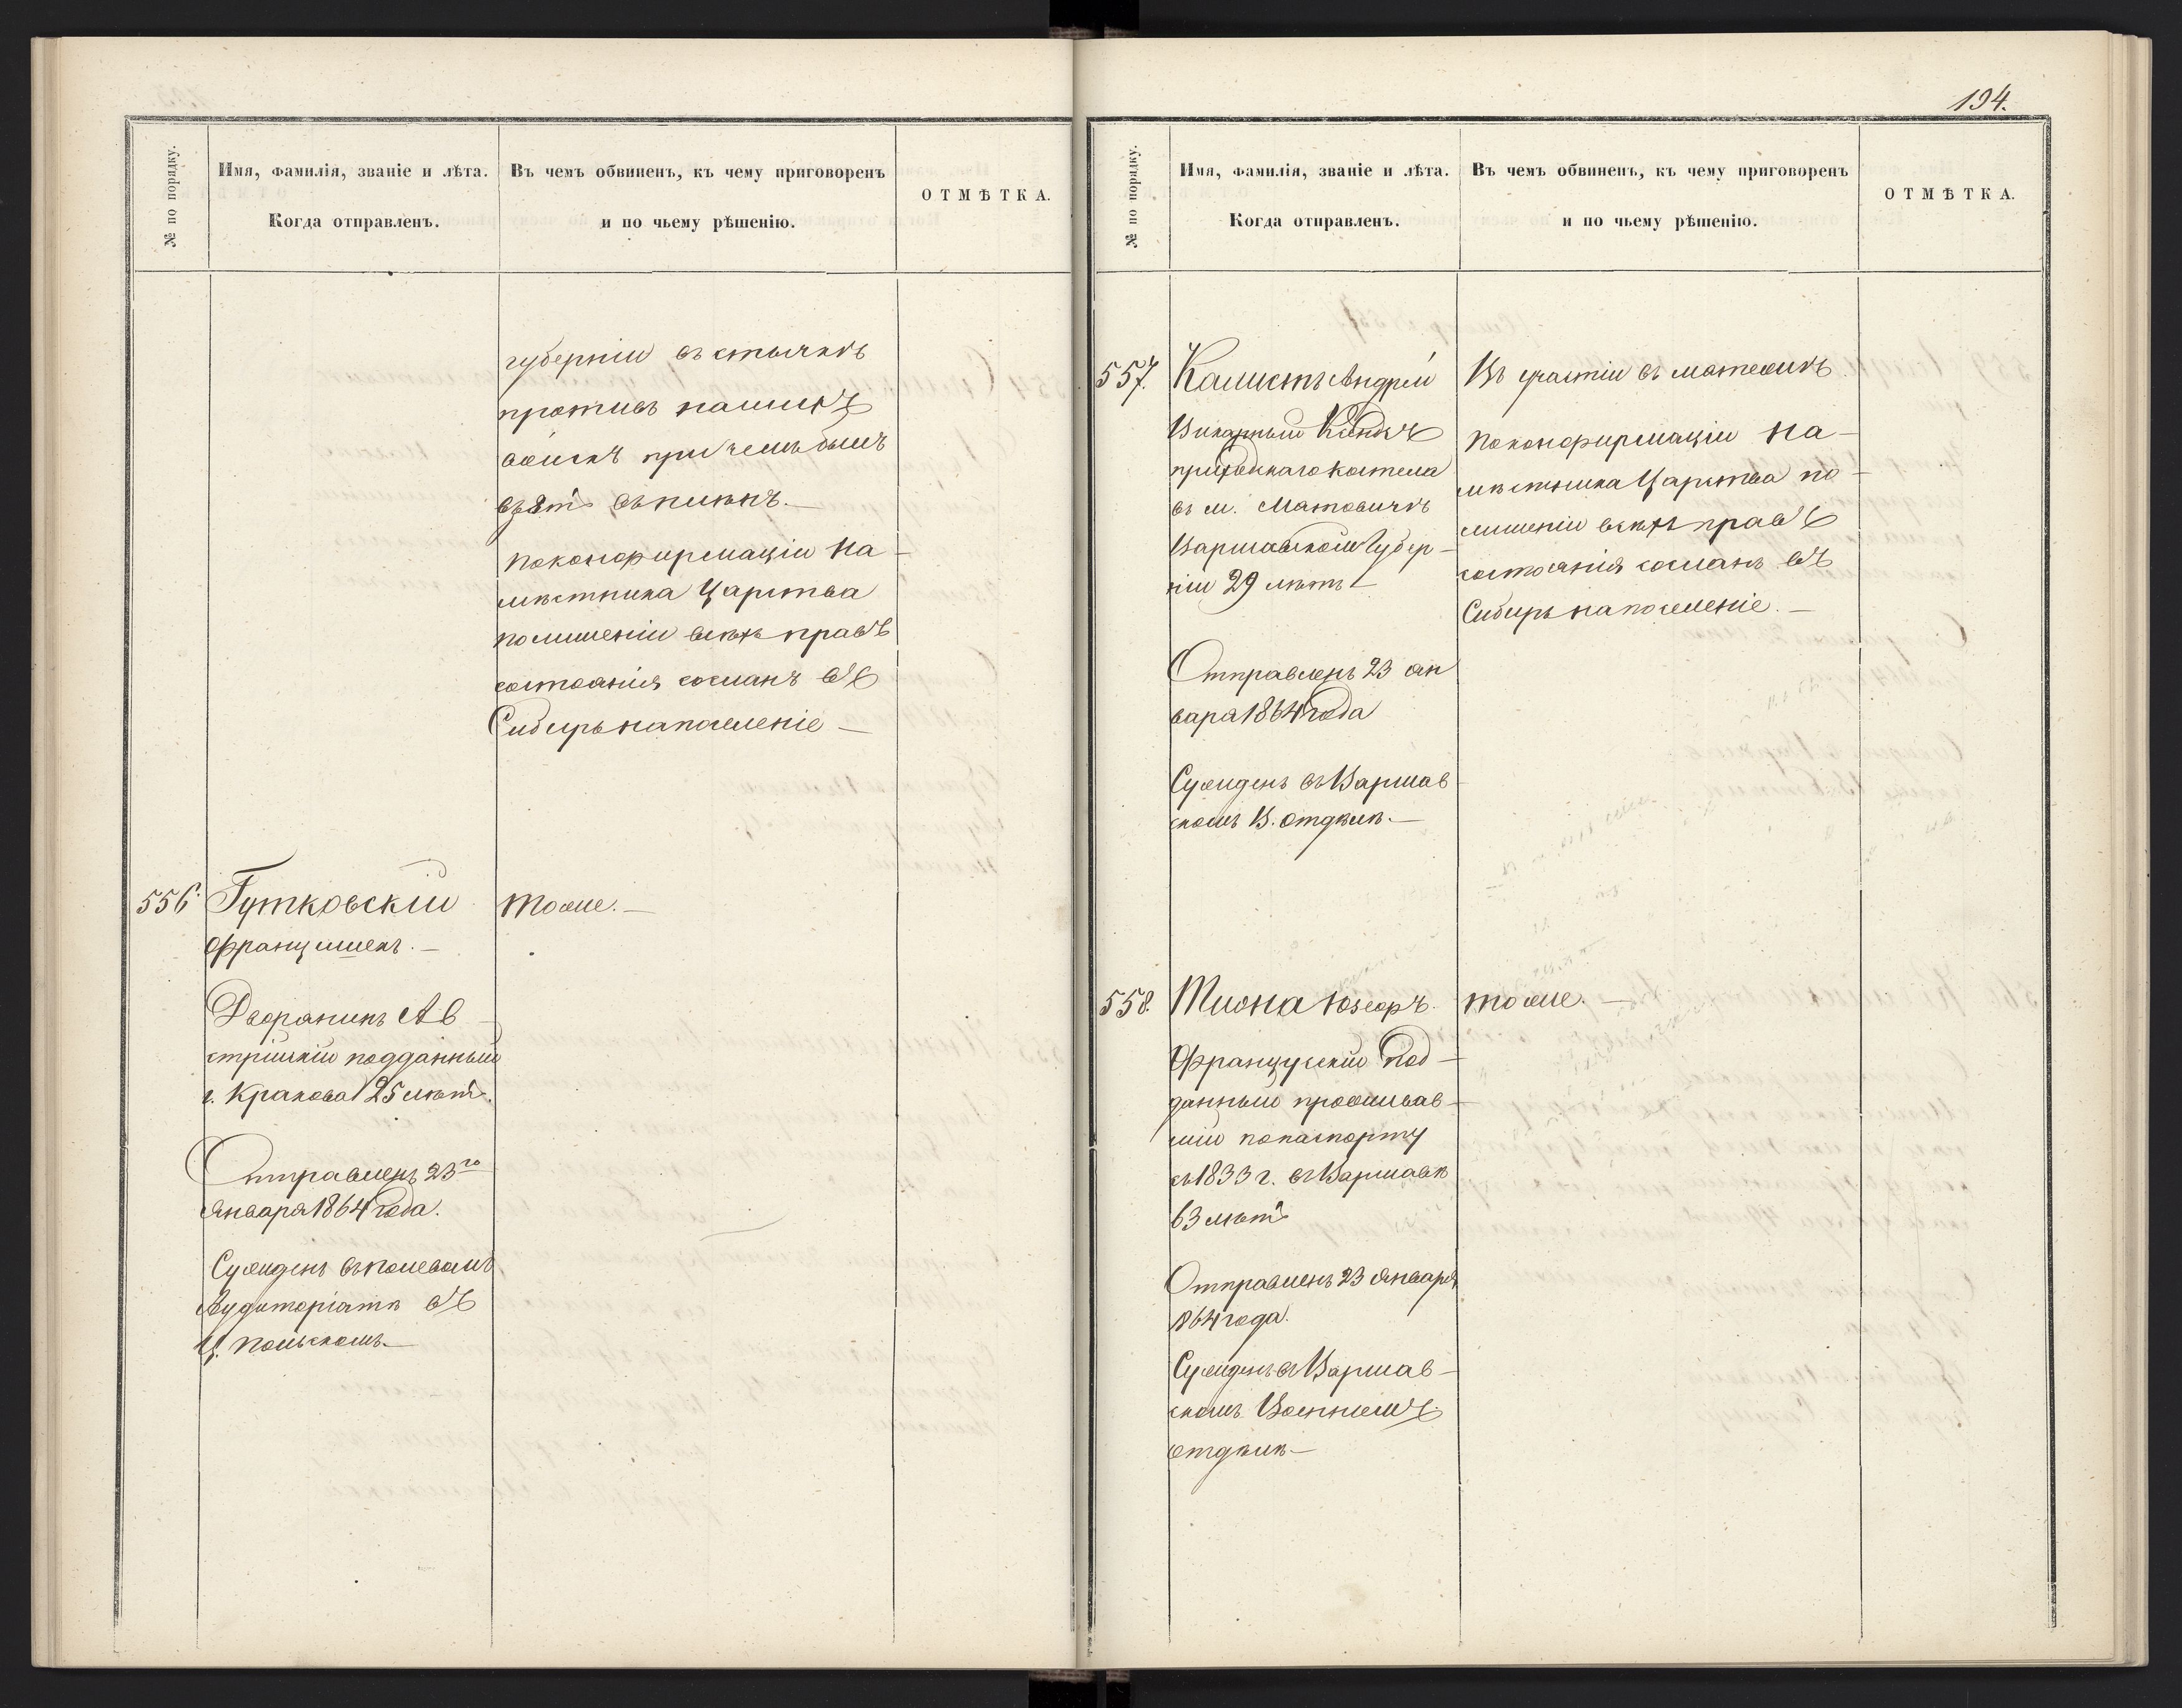 194.
№ по порядку.
Имя, фамилія, званіе и лѣта.
Когда отправленъ.
Въ чемъ обвиненъ, къ чему приговоренъ
и по чьему рѣшенію.
ОТМѢТКА.
губерніи въ стычкѣ
противъ нашихъ
войскъ при чемъ былъ
взятъ въ плѣнъ. —
По конфирмаціи На-
мѣстника Царства
по лишеніи всѣхъ правъ
состоянія сосланъ въ
Сибирь на поселеніе —
556. Гутковскій
Францишекъ. —
Дворянинъ Ав-
стрійскій подданный
г. Кракова 25 лѣтъ.
Отправленъ 23го
Января 1864 года.
Сужденъ въ полевомъ
Аудиторіатѣ въ
Ц. Польскомъ. —
Тоже. —
№ по порядку.
Имя, фамилія, званіе и лѣта.
Когда отправленъ.
Въ чемъ обвиненъ, къ чему приговоренъ
и по чьему рѣшенію.
ОТМѢТКА.
557. Калистъ Андрей
Викарный Ксендзъ
приходскаго костела
въ м.
Варшавской Губер-
ніи 29 лѣтъ —
Отправленъ 23 ян
варя 1864 года
Сужденъ въ Варшав-
скомъ В. отдѣлѣ. —
Въ участіи въ мятежѣ
По конфирмаціи На-
мѣстника Царства по
лишеніи всѣхъ правъ
состоянія сосланъ въ
Сибирь на поселеніе. —
558. Юзефъ.
Французскій Под-
данный проживав-
шій по паспорту
съ 1833 г. въ Варшавѣ
63 лѣтъ
Отправленъ 23 Января
1864 года.
Сужденъ въ Варшав-
скомъ Военномъ
отдѣлѣ —
Тоже. —